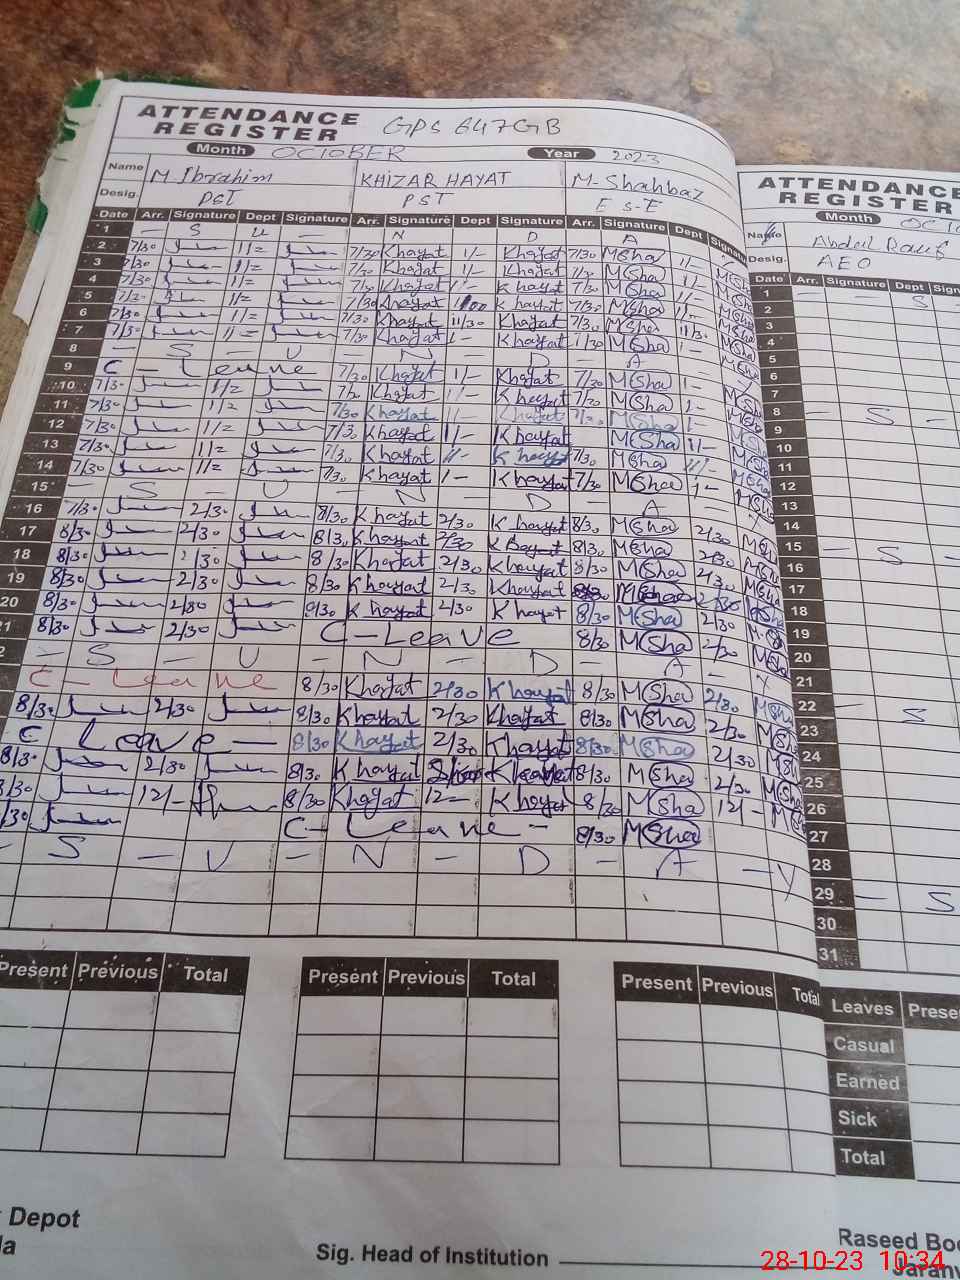 ATTENDANCE REGISTER GPS 647GB
Month OCTOBER Year 2023
Name M Ibrahim KHIZAR HAYAT M-Shahbaz
Desig. PST PST ESE
Date Arr. Signature Dept Signature Arr. Signature Dept Signature Arr. Signature Dept Signature
1 — S U — N D A
2 7/30 11/= 7/30 Khayat 1/- Khayat 7/30 MSha 1/- MSha
3 7/30 11/= 7/30 Khayat 1/- Khayat 7/30 MSha 1/- MSha
4 7/30 11/= 7/30 Khayat 1/- Khayat 7/30 MSha 1/- MSha
5 7/30 11/= 7/30 Khayat Khayat 7/30 MSha 11- MSha
6 7/30 11/= 7/30 Khayat 11/30 Khayat 7/30 MSha 11/30 MSha
7 7/30 11/= 7/30 Khayat 1- Khayat 7/30 MSha 1- MSha
8 — S — U — N — D — A — Y
9 C — Leave 7/30 Khayat 1/- Khayat 7/30 MSha 1- MSha
10 7/30 11/= 7/30 Khayat 1/- Khayat 7/30 MSha 1- MSha
11 7/30 11/= 7/30 Khayat 1/- Khayat 7/30 MSha 1- MSha
12 7/30 11/= 7/30 Khayat 1/- Khayat MSha 11- MSha
13 7/30 11/= 7/30 Khayat 11- Khayat 7/30 MSha 11- MSha
14 7/30 11/= 7/30 Khayat 1- Khayat 7/30 MSha 1- MSha
15 — S — U — N D A Y
16 7/30 2/30 8/30 Khayat 2/30 Khayat 8/30 MSha 2/30 MSha
17 8/30 2/30 8/30 Khayat 2/30 Khayat 8/30 MSha 2/30 MSha
18 8/30 2/30 8/30 Khayat 2/30 Khayat 8/30 MSha 2/30 MSha
19 8/30 2/30 8/30 Khayat 2/30 Khayat 8/30 MSha 2/30 MSha
20 8/30 2/30 8/30 Khayat 2/30 Khayat 8/30 MSha 2/30 MSha
21 8/30 2/30 C-Leave 8/30 MSha 2/30 MSha
2 — S — U — N — D — A — Y
C - Leave 8/30 Khayat 2/30 Khayat 8/30 MSha 2/30 MSha
8/30 2/30 8/30 Khayat 2/30 Khayat 8/30 MSha 2/30 MSha
C Leave — 8/30 Khayat 2/30 Khayat 8/30 MSha 2/30 MSha
8/30 2/30 8/30 Khayat Khayat 8/30 MSha 2/30 MSha
8/30 12/- 8/30 Khayat 12- Khayat 8/30 MSha 12/- MSha
8/30 C- Leave - 8/30 MSha
— S — U — N — D — A — Y
Present Previous Total
Present Previous Total
Present Previous Total
Depot
la
Sig. Head of Institution
ATTENDANCE
REGISTER
Month OCTO
Name Abdul Rauf
Desig. AEO
Date Arr. Signature Dept
1 — — S
2
3
4
5
6
7
8 — S —
9
10
11
12
13
14
15 — S —
16
17
18
19
20
21
22 — S
23
24
25
26
27
28
29 — S
30
31
Leaves Prese
Casual
Earned
Sick
Total
Raseed Boo
Jaranw
28-10-23 10:34